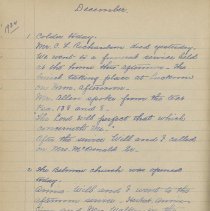 December
1934
1. Colder today.
Mr. C. F. Richardson died yesterday.
We went to a funeral service held
at the home this afternoon. The
burial taking place at
on afternoon.
Mr. Allen spoke from the text
Psa. 138 and 8.
The Lord will perfect that which
concerneth me.
After the service Will and I called
on Mrs McDonald Sr.
2. The Belmont church was opened
today.
Annie, Will and I went to the
afternoon service.